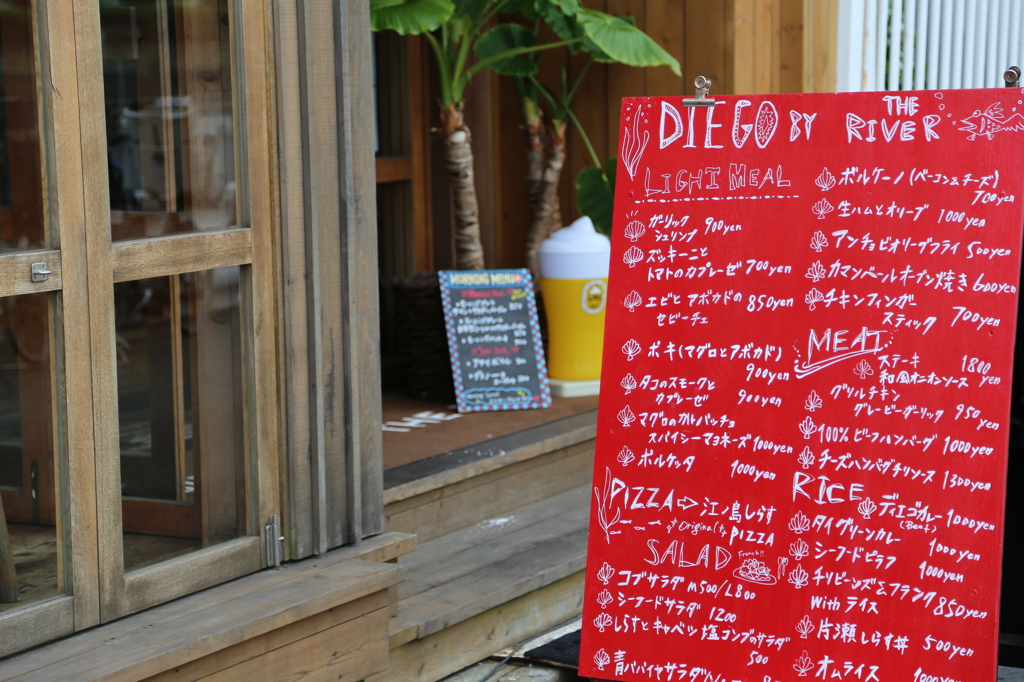 DIEGO BY THE RIVER
LIGHT MEAL
ガーリック
シュリンプ 900yen
ズッキーニと
トマトのカプレーゼ 700yen
エビとアボカドの 850yen
セビーチェ
ポキ(マグロとアボカド)
900yen
タコのスモークと
カプレーゼ 900yen
マグロのカルパッチョ
スパイシーマヨネーズ 1000yen
ポルケッタ
1000yen
PIZZA⇨江ノ島しらす
Original PIZZA
SALAD French!!
コブサラダ M500/L800
シーフードサラダ 1200
しらすとキャベツ塩コンブのサラダ
500
青パパイヤサラダ
ボルケーノ(ベーコン&チーズ)
700yen
生ハムとオリーブ 1000yen
アンチョビオリーブフライ 500yen
カマンベールオーブン焼き 600yen
チキンフィンガー
スティック 700yen
MEAT
ステーキ 1800
和風オニオンソース yen
グリルチキン
グレービーガーリック 950yen
100% ビーフハンバーグ 1000yen
チーズハンバーグチリソース 1300yen
RICE
ディエゴカレー 1000yen
(Beef)
タイグリーンカレー
1000yen
シーフードピラフ
1000yen
チリビーンズ&フランク 850yen
With ライス
片瀬しらす丼 500yen
オムライス 1000yen
MORNING MENU